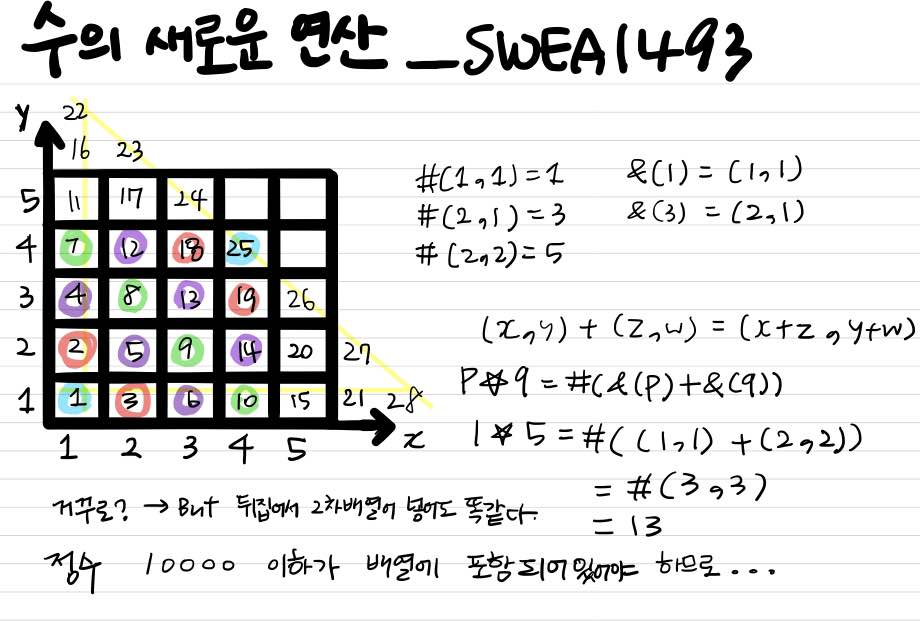 수의 새로운 연산 _SWEA1493
y 22
16 23
5 11 17 24
4 7 12 18 25
3 4 8 13 19 26
2 2 5 9 14 20 27
1 1 3 6 10 15 21 28
1 2 3 4 5 x
#(1,1)=1 &(1) = (1,1)
#(2,1) = 3 &(3) = (2,1)
#(2,2)=5
(x,y) + (z,w) = (x+z, y+w)
P☆q = #(&(p)+&(q))
1☆5 = #((1,1) + (2,2))
= #(3,3)
= 13
거꾸로? → But 뒤집에서 2차배열에 넣어도 똑같다.
정수 10000 이하가 배열에 포함되어 있어야 하므로...